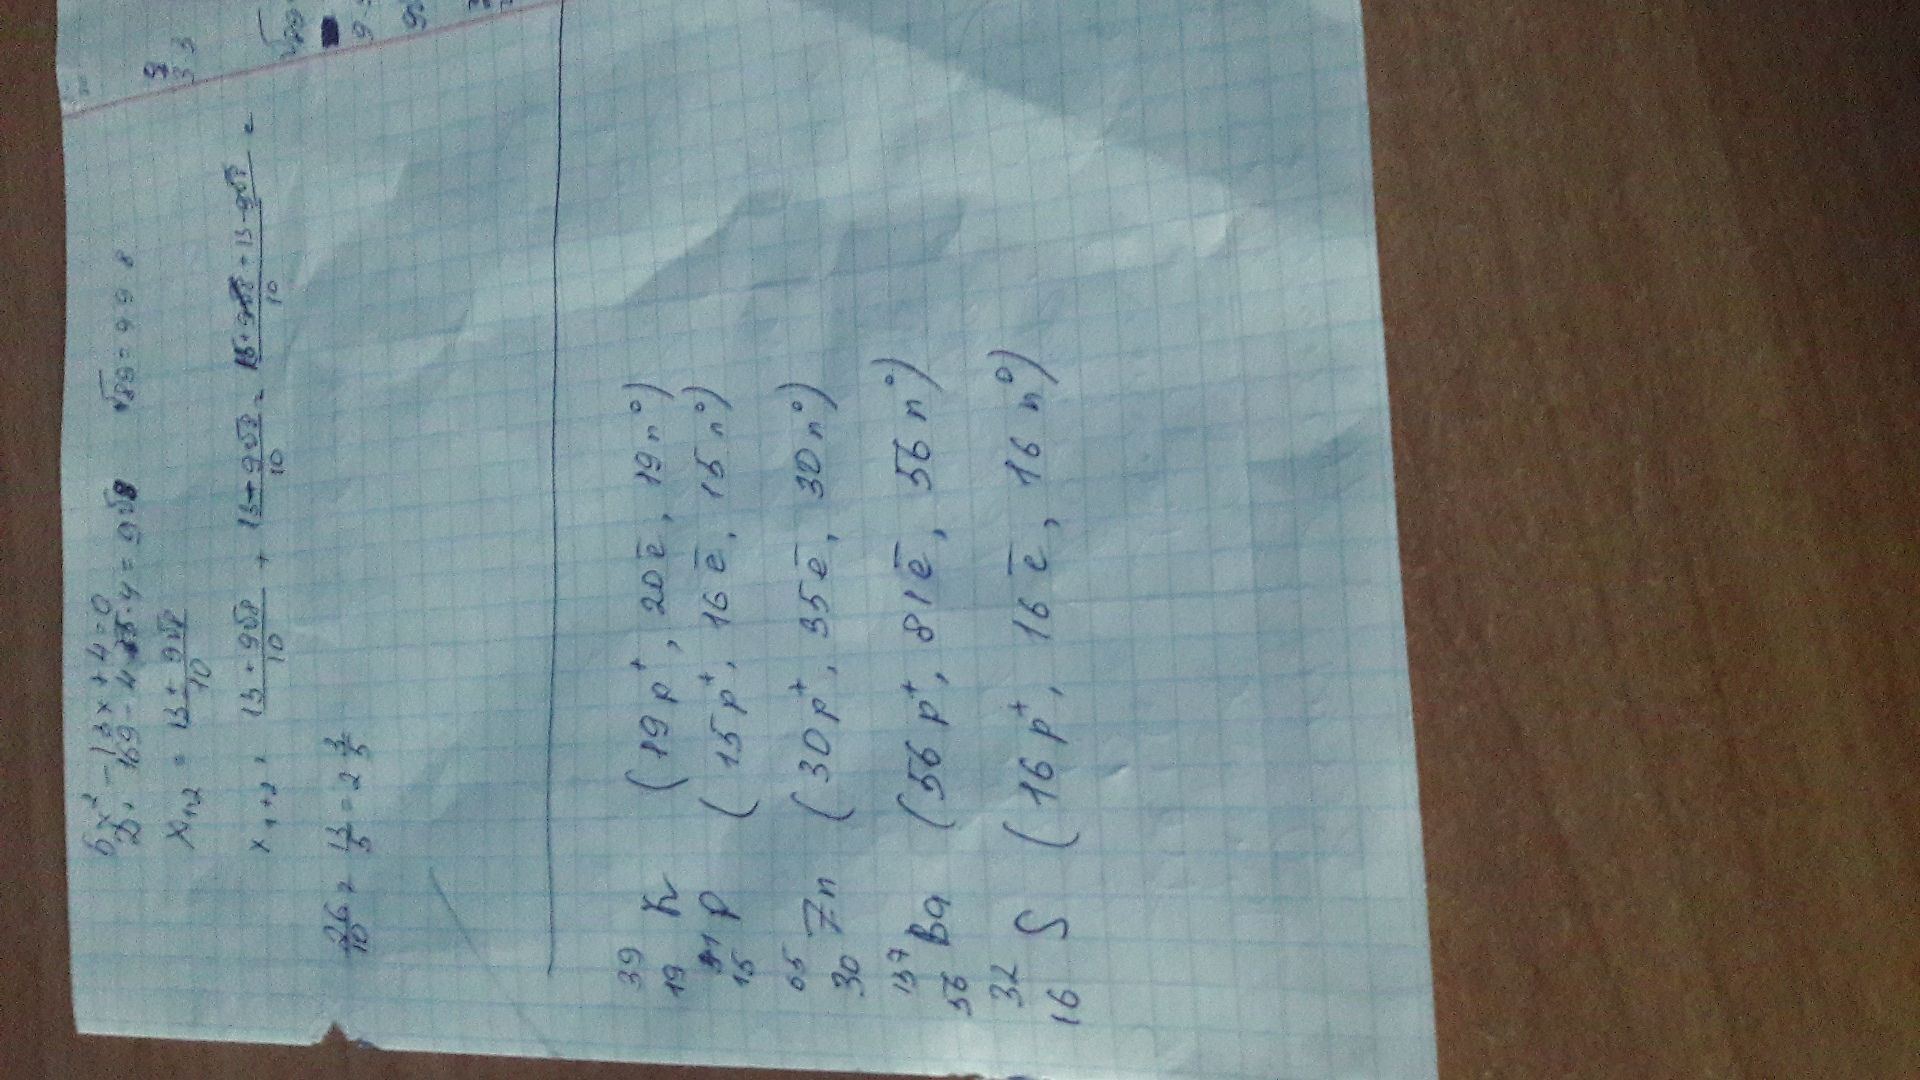 5x² - 13x + 4 = 0
D = 169 - 4·5·4 = 9√8 √89 = 9 9 8
x₁,₂ = 13 ± 9√8 / 10
x₁+₂ = 13 + 9√8 / 10 + 13 + 9√8 / 10 = 13 + 9√8 + 13 - 9√8 / 10 =
26/10 = 13/5 = 2 3/5
³⁹₁₉K (19p⁺, 20e̅, 19n⁰)
³¹₁₅P (15p⁺, 16e̅, 15n⁰)
⁶⁵₃₀Zn (30p⁺, 35e̅, 30n⁰)
¹³⁷₅₆Ba (56p⁺, 81e̅, 56n⁰)
³²₁₆S (16p⁺, 16e̅, 16n⁰)